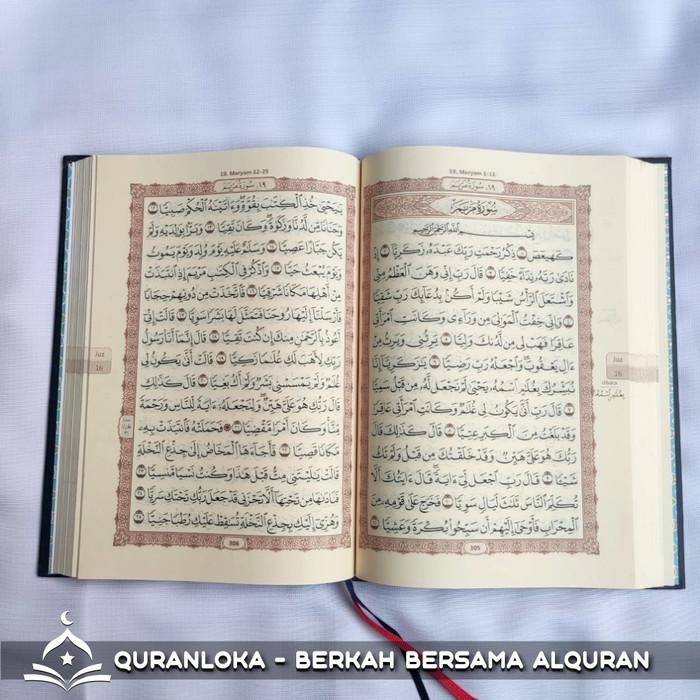 19. Maryam 1-11
١٩. سُورَةُ مَرْيَمَ
سُورَةُ مَرْيَمَ
بِسْمِ اللَّهِ الرَّحْمَٰنِ الرَّحِيمِ
كٓهيعٓصٓ ١ ذِكْرُ رَحْمَتِ رَبِّكَ عَبْدَهُۥ زَكَرِيَّآ ٢ إِذْ
نَادَىٰ رَبَّهُۥ نِدَآءً خَفِيًّا ٣ قَالَ رَبِّ إِنِّى وَهَنَ ٱلْعَظْمُ مِنِّى
وَٱشْتَعَلَ ٱلرَّأْسُ شَيْبًا وَلَمْ أَكُنۢ بِدُعَآئِكَ رَبِّ شَقِيًّا
٤ وَإِنِّى خِفْتُ ٱلْمَوَٰلِىَ مِن وَرَآءِى وَكَانَتِ ٱمْرَأَتِى
عَاقِرًا فَهَبْ لِى مِن لَّدُنكَ وَلِيًّا ٥ يَرِثُنِى وَيَرِثُ مِنْ
ءَالِ يَعْقُوبَ ۖ وَٱجْعَلْهُ رَبِّ رَضِيًّا ٦ يَٰزَكَرِيَّآ إِنَّا
نُبَشِّرُكَ بِغُلَٰمٍ ٱسْمُهُۥ يَحْيَىٰ لَمْ نَجْعَل لَّهُۥ مِن قَبْلُ سَمِيًّا
٧ قَالَ رَبِّ أَنَّىٰ يَكُونُ لِى غُلَٰمٌ وَكَانَتِ ٱمْرَأَتِى عَاقِرًا
وَقَدْ بَلَغْتُ مِنَ ٱلْكِبَرِ عِتِيًّا ٨ قَالَ كَذَٰلِكَ قَالَ
رَبُّكَ هُوَ عَلَىَّ هَيِّنٌ وَقَدْ خَلَقْتُكَ مِن قَبْلُ وَلَمْ تَكُ
شَيْـًٔا ٩ قَالَ رَبِّ ٱجْعَل لِّىٓ ءَايَةً ۚ قَالَ ءَايَتُكَ أَلَّا
تُكَلِّمَ ٱلنَّاسَ ثَلَٰثَ لَيَالٍ سَوِيًّا ١٠ فَخَرَجَ عَلَىٰ قَوْمِهِۦ مِنَ
ٱلْمِحْرَابِ فَأَوْحَىٰٓ إِلَيْهِمْ أَن سَبِّحُوا۟ بُكْرَةً وَعَشِيًّا ١١
305
Juz
16
19. Maryam 12-25
١٩. سُورَةُ مَرْيَمَ
يَٰيَحْيَىٰ خُذِ ٱلْكِتَٰبَ بِقُوَّةٍ ۖ وَءَاتَيْنَٰهُ ٱلْحُكْمَ صَبِيًّا ١٢
وَحَنَانًا مِّن لَّدُنَّا وَزَكَوٰةً ۖ وَكَانَ تَقِيًّا ١٣ وَبَرًّۢا بِوَٰلِدَيْهِ وَلَمْ
يَكُن جَبَّارًا عَصِيًّا ١٤ وَسَلَٰمٌ عَلَيْهِ يَوْمَ وُلِدَ وَيَوْمَ يَمُوتُ
وَيَوْمَ يُبْعَثُ حَيًّا ١٥ وَٱذْكُرْ فِى ٱلْكِتَٰبِ مَرْيَمَ إِذِ ٱنتَبَذَتْ
مِنْ أَهْلِهَا مَكَانًا شَرْقِيًّا ١٦ فَٱتَّخَذَتْ مِن دُونِهِمْ حِجَابًا
فَأَرْسَلْنَآ إِلَيْهَا رُوحَنَا فَتَمَثَّلَ لَهَا بَشَرًا سَوِيًّا ١٧ قَالَتْ إِنِّىٓ
أَعُوذُ بِٱلرَّحْمَٰنِ مِنكَ إِن كُنتَ تَقِيًّا ١٨ قَالَ إِنَّمَآ أَنَا۠ رَسُولُ
رَبِّكِ لِأَهَبَ لَكِ غُلَٰمًا زَكِيًّا ١٩ قَالَتْ أَنَّىٰ يَكُونُ لِى
غُلَٰمٌ وَلَمْ يَمْسَسْنِى بَشَرٌ وَلَمْ أَكُ بَغِيًّا ٢٠ قَالَ كَذَٰلِكِ
قَالَ رَبُّكِ هُوَ عَلَىَّ هَيِّنٌ ۖ وَلِنَجْعَلَهُۥٓ ءَايَةً لِّلنَّاسِ وَرَحْمَةً
مِّنَّا ۚ وَكَانَ أَمْرًا مَّقْضِيًّا ٢١ فَحَمَلَتْهُ فَٱنتَبَذَتْ بِهِۦ
مَكَانًا قَصِيًّا ٢٢ فَأَجَآءَهَا ٱلْمَخَاضُ إِلَىٰ جِذْعِ ٱلنَّخْلَةِ
قَالَتْ يَٰلَيْتَنِى مِتُّ قَبْلَ هَٰذَا وَكُنتُ نَسْيًا مَّنسِيًّا ٢٣
فَنَادَىٰهَا مِن تَحْتِهَآ أَلَّا تَحْزَنِى قَدْ جَعَلَ رَبُّكِ تَحْتَكِ سَرِيًّا ٢٤
وَهُزِّىٓ إِلَيْكِ بِجِذْعِ ٱلنَّخْلَةِ تُسَٰقِطْ عَلَيْكِ رُطَبًا جَنِيًّا ٢٥
306
Juz
16
QURANLOKA - BERKAH BERSAMA ALQURAN